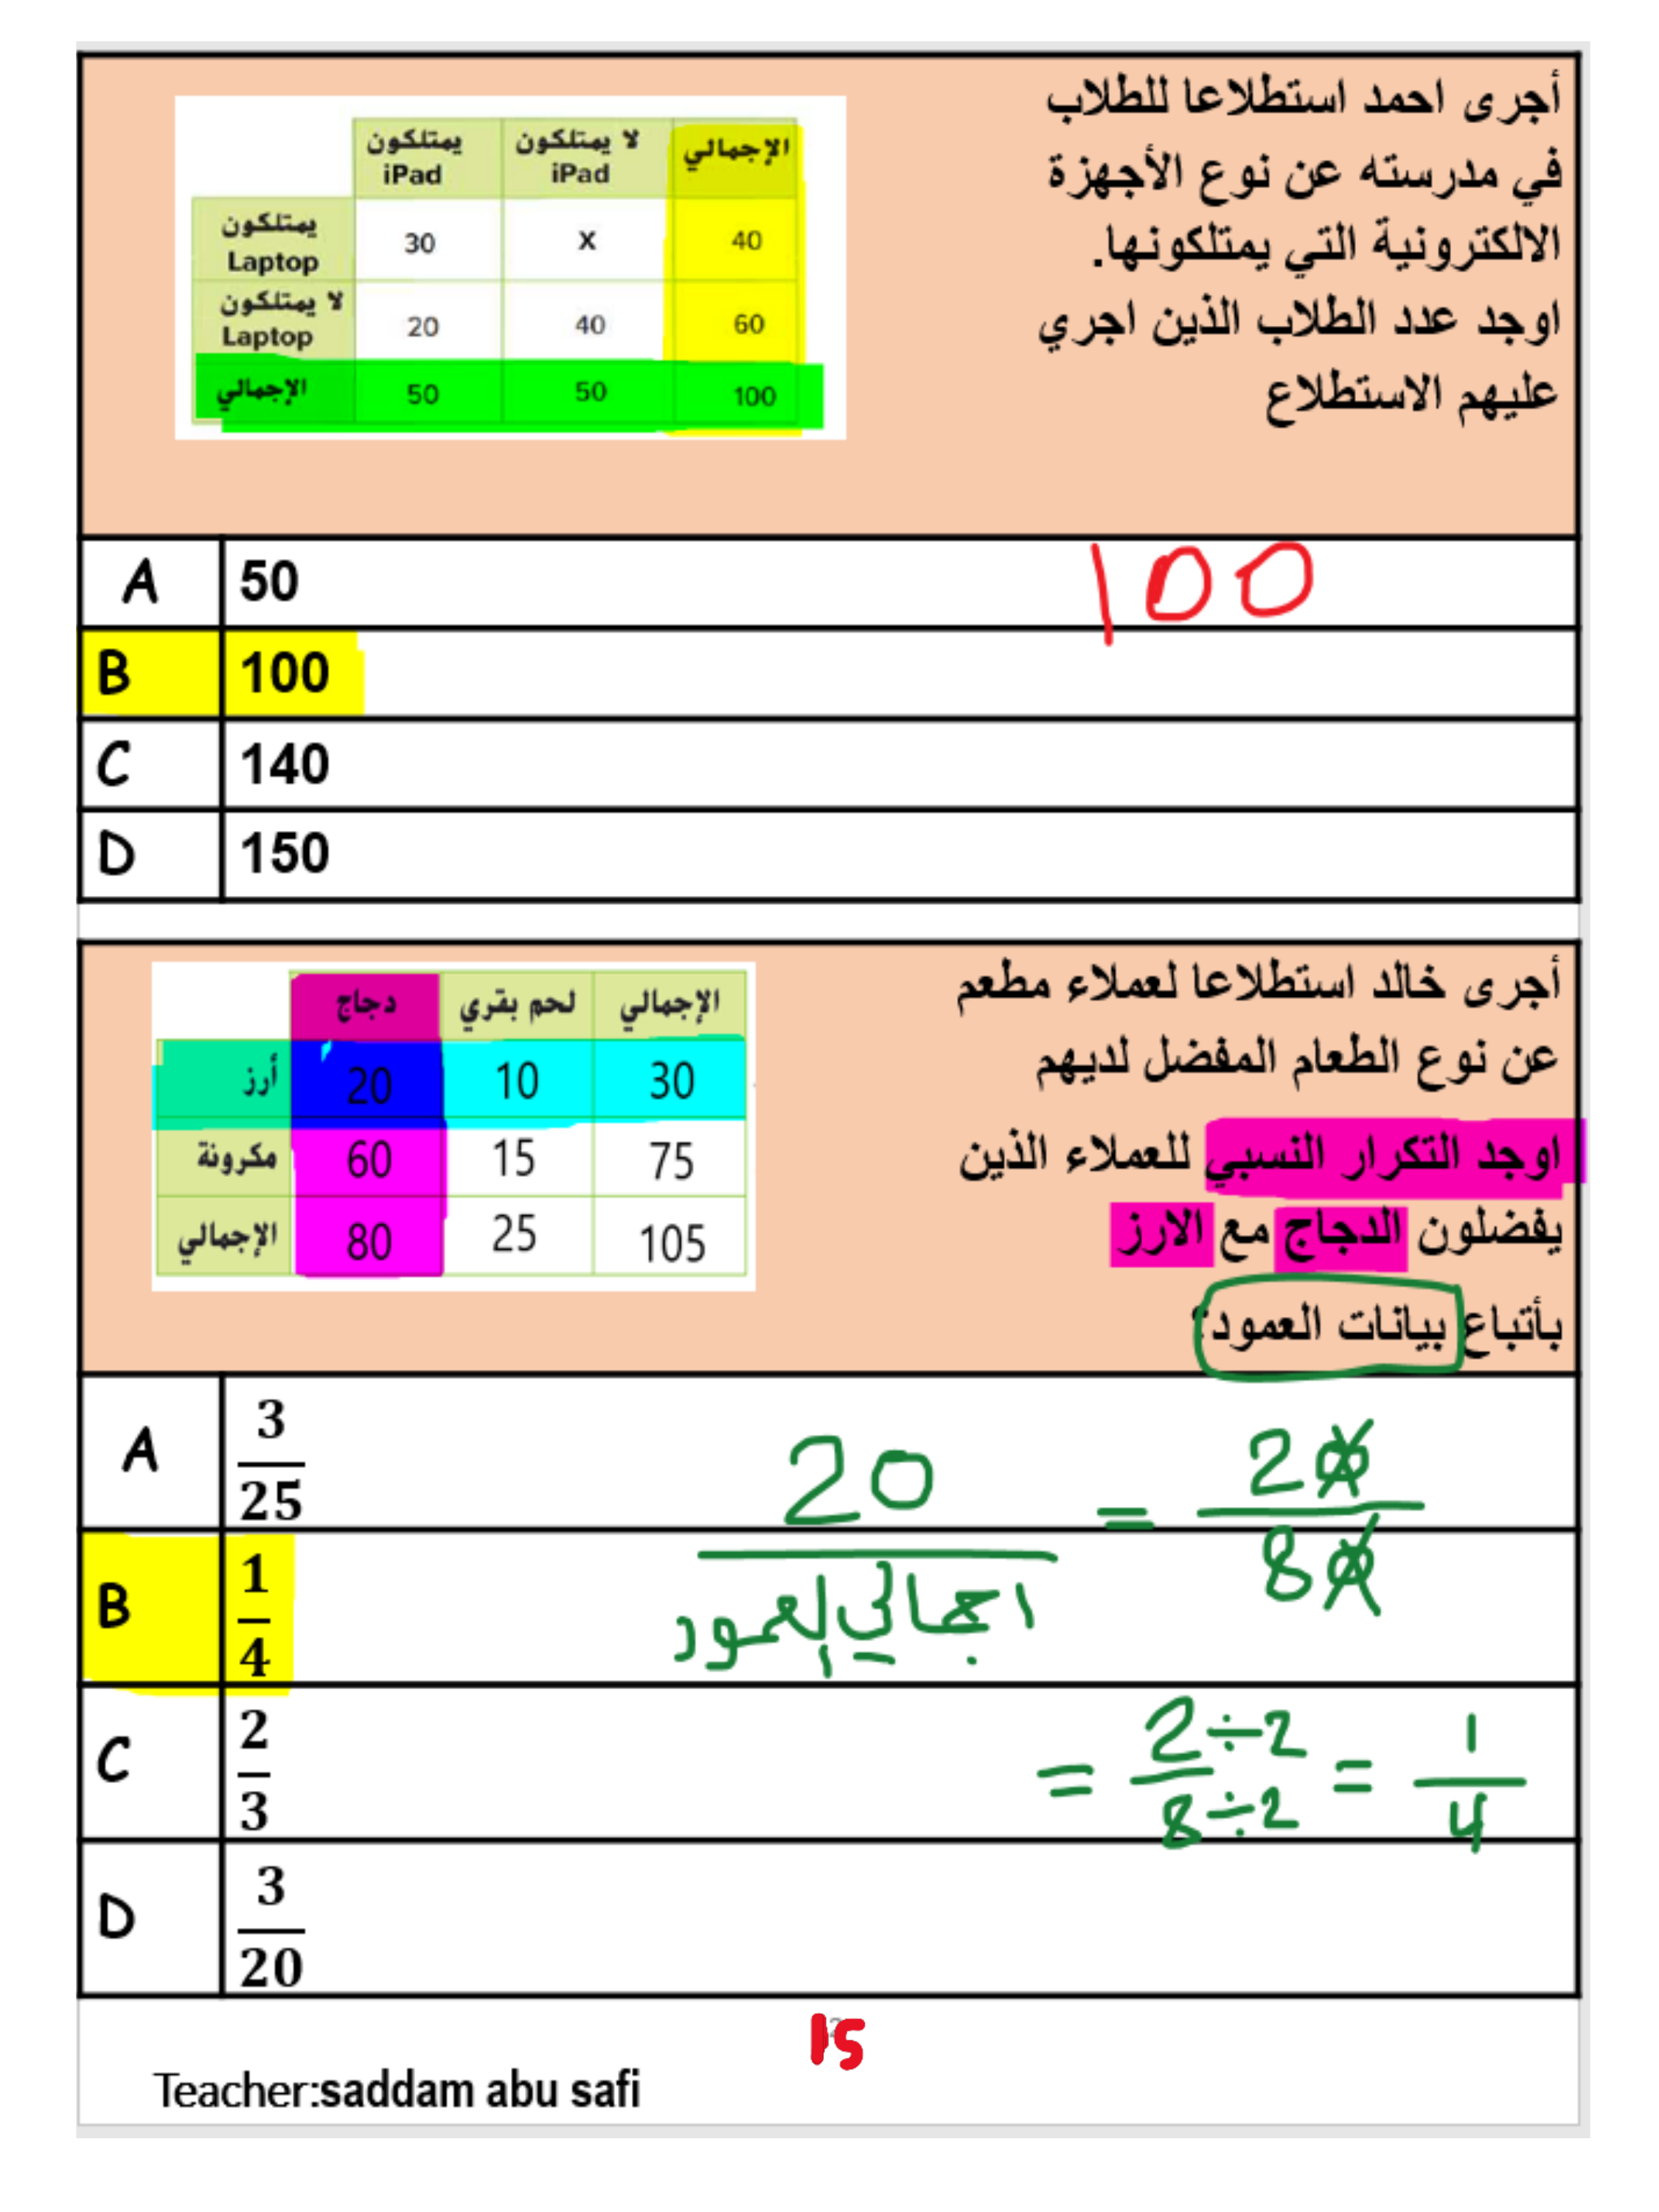 أجرى احمد استطلاعا للطلاب
في مدرسته عن نوع الأجهزة
الالكترونية التي يمتلكونها.
اوجد عدد الطلاب الذين اجري
عليهم الاستطلاع
يمتلكون iPad	لا يمتلكون iPad	الإجمالي
يمتلكون Laptop	30	x	40
لا يمتلكون Laptop	20	40	60
الإجمالي	50	50	100
A	50
100
B	100
C	140
D	150
أجرى خالد استطلاعا لعملاء مطعم
عن نوع الطعام المفضل لديهم
اوجد التكرار النسبي للعملاء الذين
يفضلون الدجاج مع الارز
بأتباع بيانات العمود؟
دجاج	لحم بقري	الإجمالي
أرز	20	10	30
مكرونة	60	15	75
الإجمالي	80	25	105
A	3/25
B	1/4
C	2/3
D	3/20
20/اجمالي العمود = 20/80
= 2÷2/8÷2 = 1/4
15
Teacher:saddam abu safi